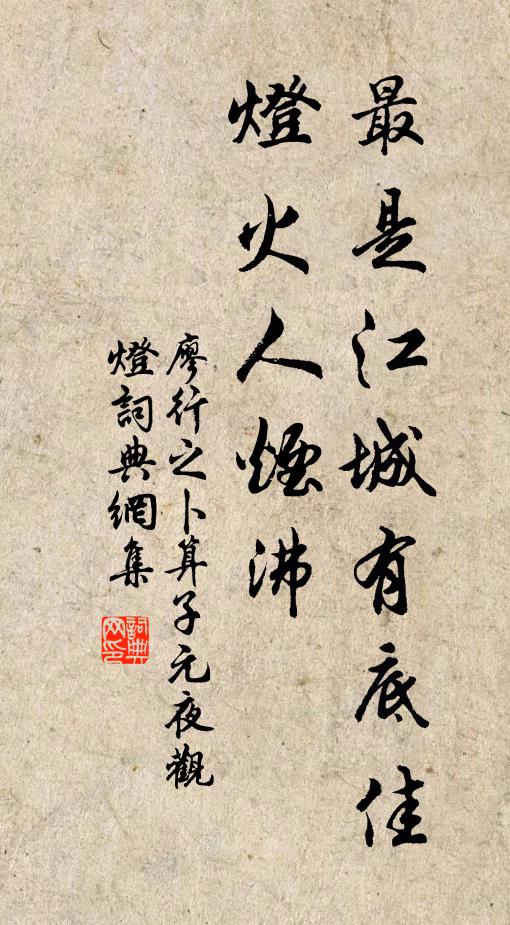 最是江城有底佳
燈火人煙沸
廖行之卜算子元夜觀
燈詞典網集
詞典
网印